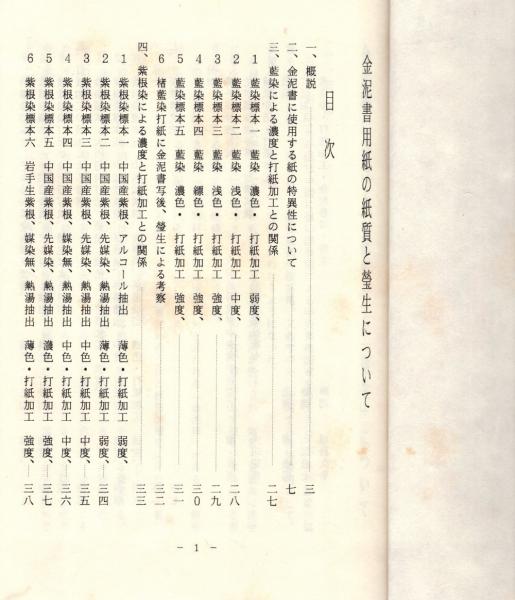 金泥書用紙の紙質と瑩生について
目次
一、概説 三
二、金泥書に使用する紙の特異性について 七
三、藍染による濃度と打紙加工との関係 二七
1 藍染標本一 藍染 濃色・ 打紙加工 弱度、
2 藍染標本二 藍染 浅色・ 打紙加工 中度、 二八
3 藍染標本三 藍染 浅色・ 打紙加工 強度、 二九
4 藍染標本四 藍染 縹色・ 打紙加工 強度、 三〇
5 藍染標本五 藍染 濃色・ 打紙加工 強度、 三一
6 楮藍染打紙に金泥書写後、瑩生による考察 三二
四、紫根染による濃度と打紙加工との関係 三三
1 紫根染標本一 中国産紫根、アルコール抽出 薄色・打紙加工 弱度、
2 紫根染標本二 中国産紫根、先媒染、熱湯抽出 薄色・打紙加工 弱度、 三四
3 紫根染標本三 中国産紫根、先媒染、熱湯抽出 中色・打紙加工 中度、 三五
4 紫根染標本四 中国産紫根、媒染無、熱湯抽出 中色・打紙加工 中度、 三六
5 紫根染標本五 中国産紫根、先媒染、熱湯抽出 濃色・打紙加工 強度、 三七
6 紫根染標本六 岩手生紫根、媒染無、熱湯抽出 薄色・打紙加工 強度、 三八
- 1 -